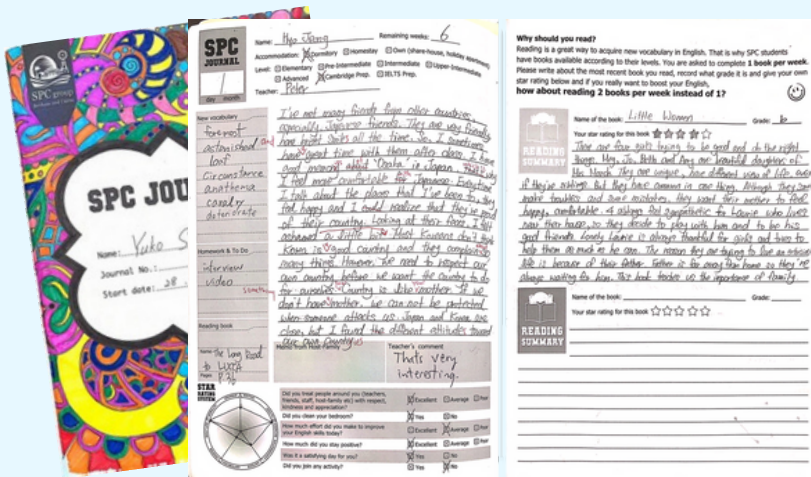 SPC group
SPC JOU
Name: Yuko S
Journal No.:
Start date: 28.
SPC
JOURNAL
day / month
Name: Hyo Jeong Remaining weeks: 6
Accommodation: Dormitory Homestay Own (share-house, holiday apartment)
Level: Elementary Pre-Intermediate Intermediate Upper-Intermediate
Advanced Cambridge Prep. IELTS Prep.
Teacher: Peter
New vocabulary
foremost
astonished
loaf
circumstance
anathema
cavalry
deteriorate
Homework & To Do
interview
video
Reading book
Name: The Long Road
to
Pages: P.36
I've not many friends from other countries
especially Japanese friends. They are very friendly
all the time. So, I sometimes
have great time with them after class. I have
good about "Osaka" in Japan.
I feel more comfortable Japanese. Everytime
I talk about the places that I've been to, they
feel happy and I could realize that they're proud
of their country. Looking at their faces, I felt
ashamed a little bit. Most Koreans don't think
Korea is good country and they complain
many things. However, we need to respect our
own country before we want the country to do
something
for ourselves. Country is like mother. If we
don't have mother, we can not be protected
when someone attacks us. Japan and Korea are
close, but I found the different attitudes toward
our own country.
Memo from Host Family
Teacher's comment
That's very
interesting.
STAR
RATING
SYSTEM
Did you treat people around you (teachers,
friends, staff, host-family etc) with respect,
kindness and appreciation? Excellent Average Poor
Did you clean your bedroom? Yes No
How much effort did you make to improve
your English skills today? Excellent Average Poor
How much did you stay positive? Excellent Average Poor
Was it a satisfying day for you? Yes No
Did you join any activity? Yes No
Why should you read?
Reading is a great way to acquire new vocabulary in English. That is why SPC students
have books available according to their levels. You are asked to complete 1 book per week.
Please write about the most recent book you read, record what grade it is and give your own
star rating below and if you really want to boost your English,
how about reading 2 books per week instead of 1?
READING
SUMMARY
Name of the book: Little Women Grade: 6
Your star rating for this book
There are four girls trying to be good and do the right
things. Meg, Jo, Beth and Amy are beautiful daughters of
Mrs. March. They are unique, have different view of life, even
if they're siblings. But they have common in one thing. Although they
make troubles and some mistakes, they want their mother to feel
happy, comfortable. 4 siblings feel sympathetic for Laurie who lives
near their house, so they decide to play with him and to be his
good friends. Lonely Laurie is always thankful for girls and tries to
help them as much as he can. The reason they are trying to live an
life is because of their father. Father is far away from home so they're
always waiting for him. This book teaches us the importance of family.
READING
SUMMARY
Name of the book: Grade:
Your star rating for this book